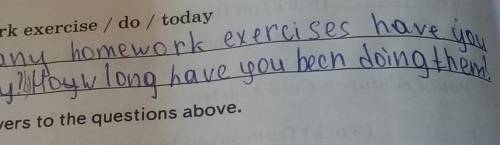 rk exercise / do / today
any homework exercises have you
y? How long have you been doing them?
vers to the questions above.